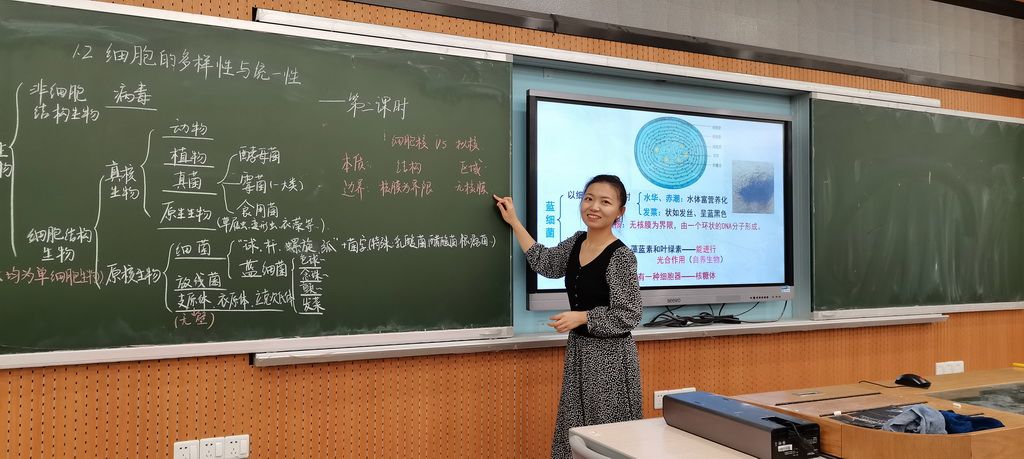 1.2 细胞的多样性与统一性
——第二课时
非细胞
结构生物
病毒
真核
生物
动物
植物
真菌
酵母菌
霉菌(一大类)
食用菌
原生生物
(草履虫、变形虫、衣藻等)
细胞结构
生物
原核生物
(均为单细胞生物)
细菌
球、杆、螺旋、弧
蓝细菌
发菜
放线菌
支原体 衣原体 立克次氏体
(无壁)
细胞核 VS 拟核
本质: 结构 区域
边界: 核膜为界限 无核膜
蓝细菌
水华、赤潮:水体富营养化
发菜:状如发丝、呈蓝黑色
无核膜为界限,由一个环状的DNA分子形成。
藻蓝素和叶绿素——能进行
光合作用(自养生物)
有一种细胞器——核糖体
seewo